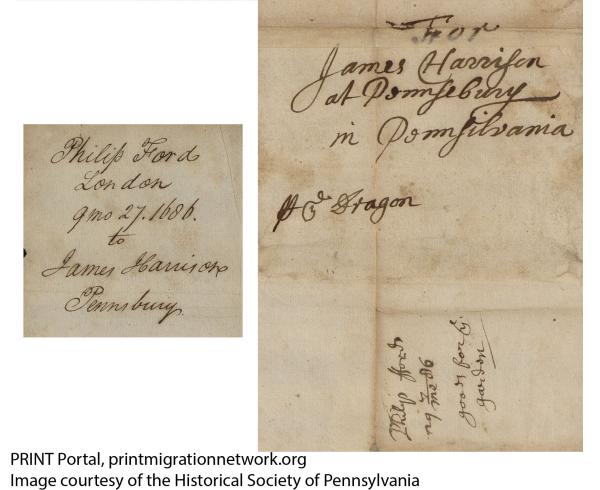 Philip Ford
London
9mo 27. 1686.
to
James Harrison
Pennsbury
For
James Harrison
at Pennsebury
in Pennsilvania
Dragon
Philip fford
86
goods for
garden
PRINT Portal, printmigrationnetwork.org
Image courtesy of the Historical Society of Pennsylvania